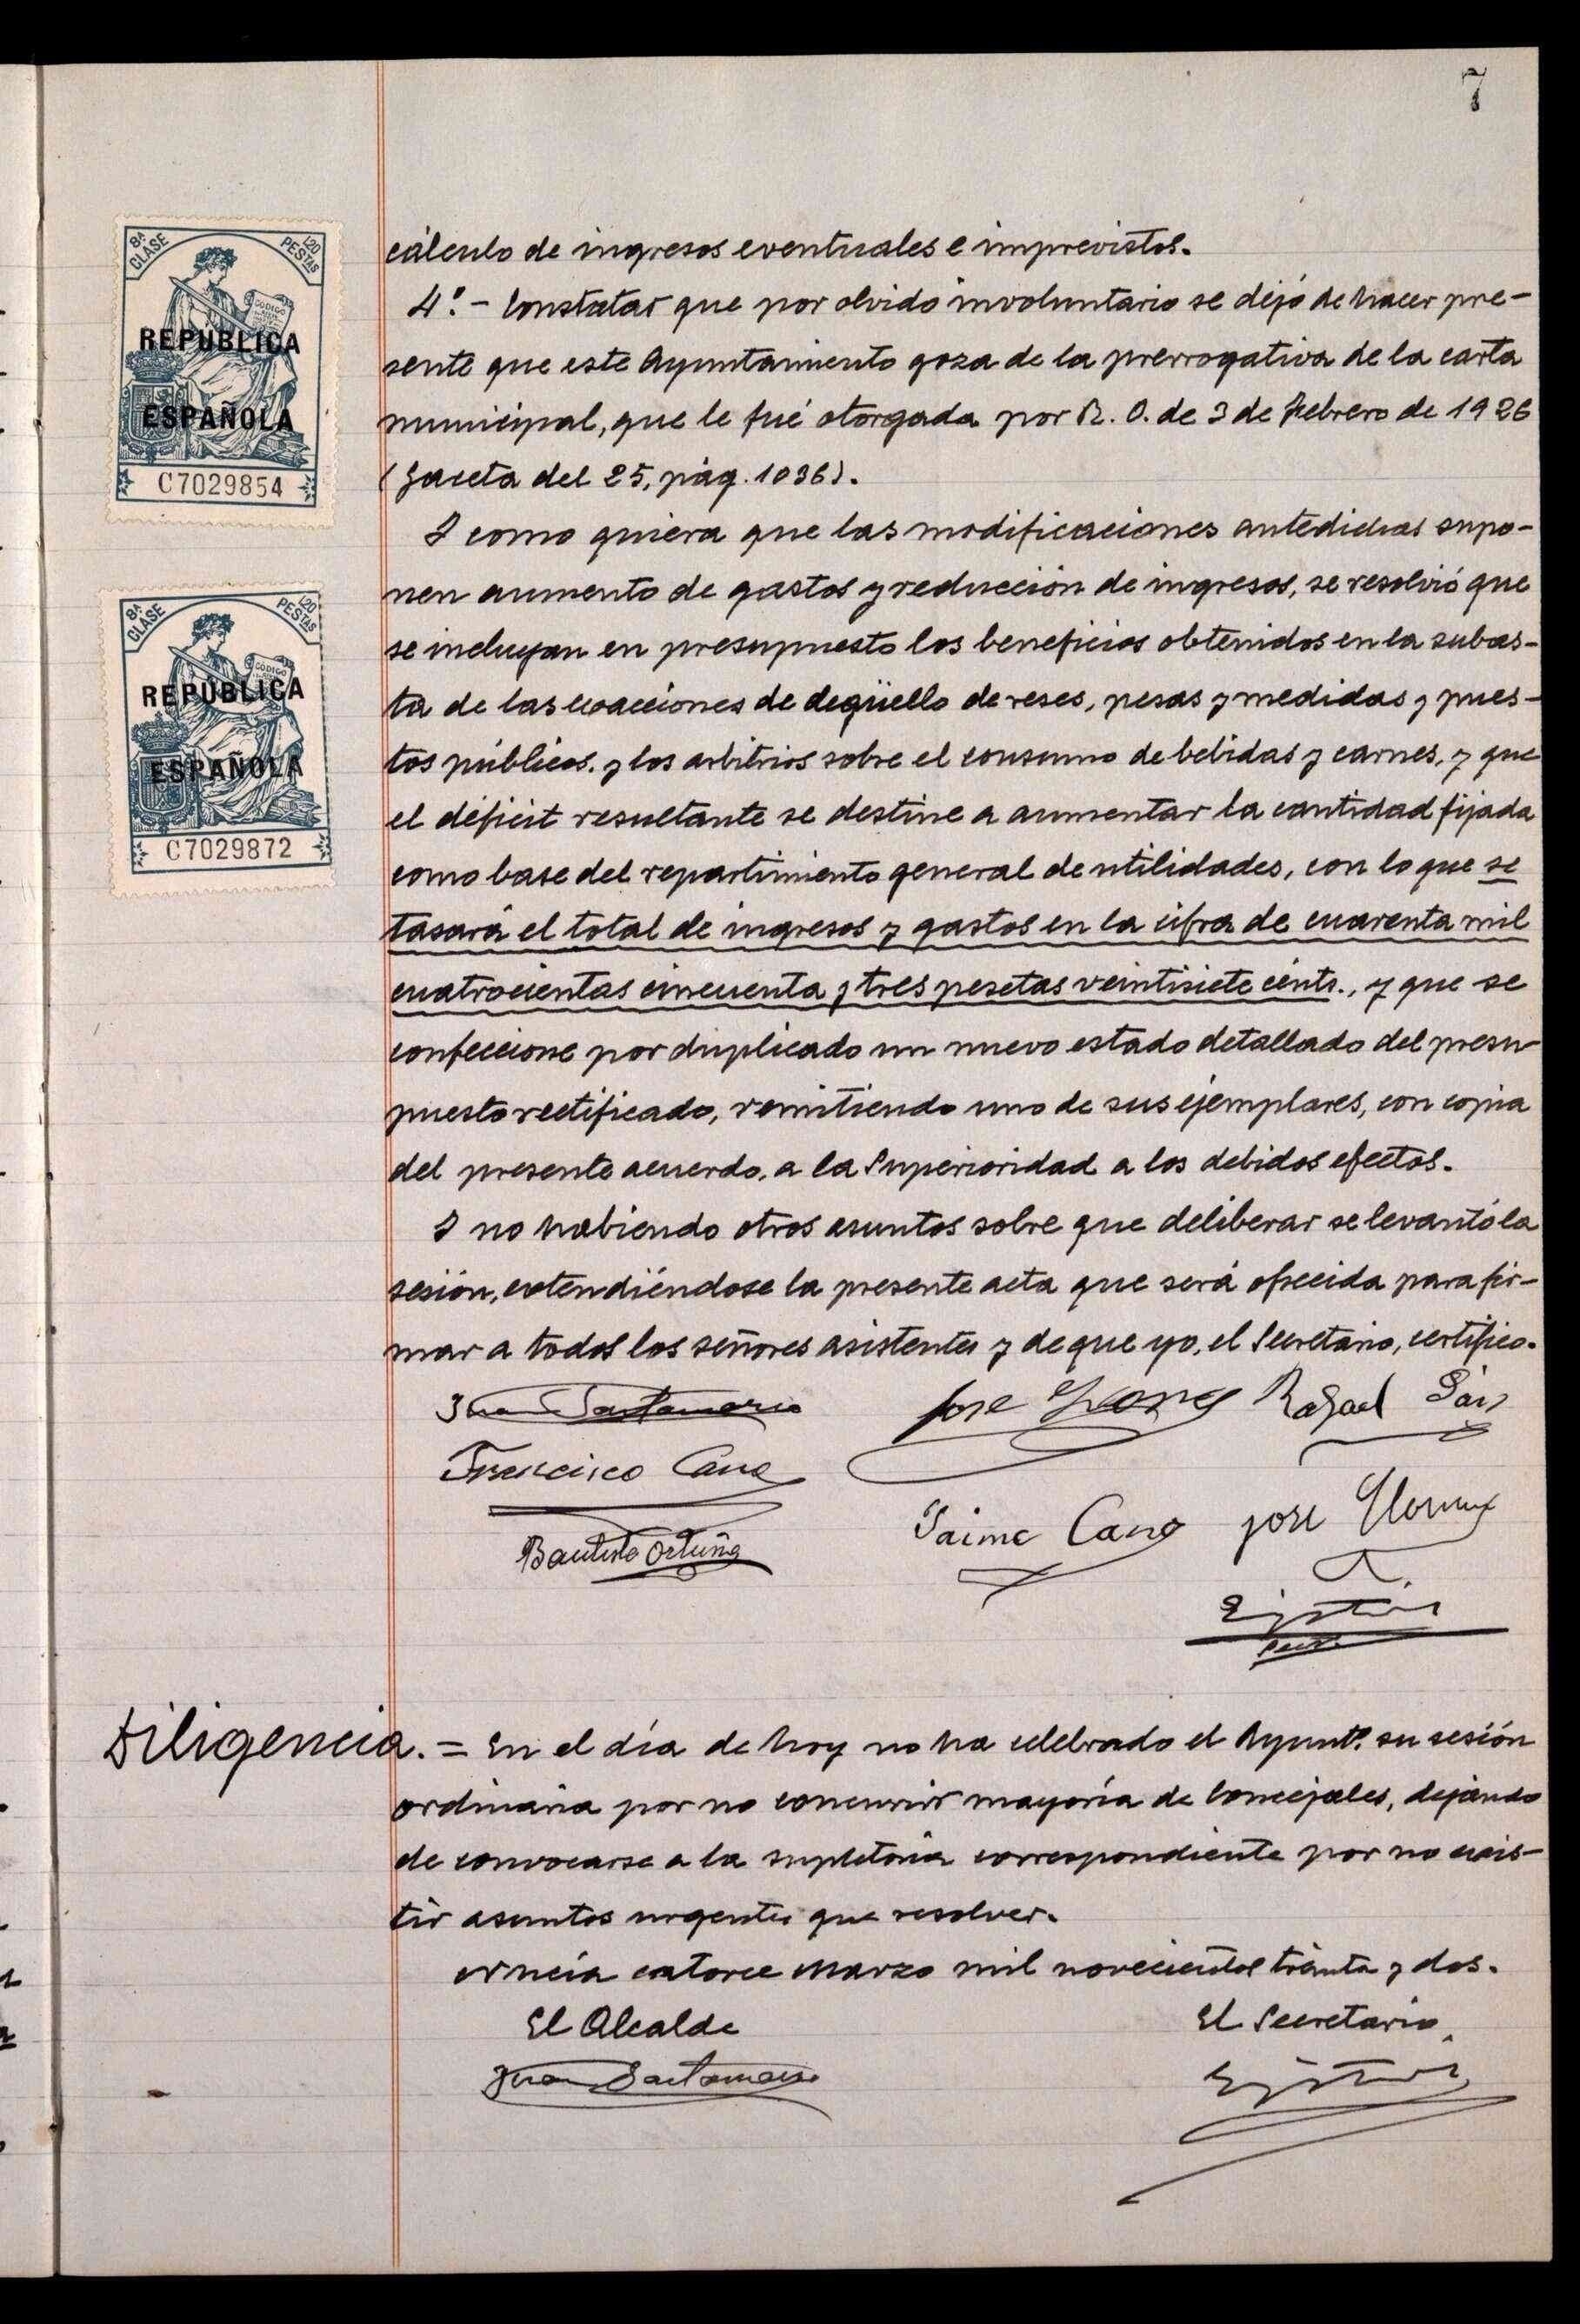 7
8ª CLASE
1,20 PESTAS
CÓDIGO
REPÚBLICA
ESPAÑOLA
C7029854
8ª CLASE
1,20 PESTAS
CÓDIGO
REPÚBLICA
ESPAÑOLA
C7029872
cálculo de ingresos eventuales e imprevistos.
4º.- Constatar que por olvido involuntario se dejó de hacer pre-
sente que este Ayuntamiento goza de la prerrogativa de la carta
municipal, que le fué otorgada por R. O. de 3 de Febrero de 1926
(Gaceta del 25, pág. 1036).
Y como quiera que las modificaciones antedichas supo-
nen aumento de gastos y reducción de ingresos, se resolvió que
se incluyan en presupuesto los beneficios obtenidos en la subas-
ta de las exacciones de degüello de reses, pesas y medidas y pues-
tos públicos, y los arbitrios sobre el consumo de bebidas y carnes, y que
el déficit resultante se destine a aumentar la cantidad fijada
como base del repartimiento general de utilidades, con lo que se
tasará el total de ingresos y gastos en la cifra de cuarenta mil
cuatrocientas cincuenta y tres pesetas veintisiete cénts., y que se
confeccione por duplicado un nuevo estado detallado del presu-
puesto rectificado, remitiendo uno de sus ejemplares, con copia
del presente acuerdo, a la Superioridad a los debidos efectos.
Y no habiendo otros asuntos sobre que deliberar se levantó la
sesión, extendiéndose la presente acta que será ofrecida para fir-
mar a todos los señores asistentes y de que yo, el Secretario, certifico.
Juan Santamaria
Jose Llorens
Rafael
Francisco Cano
Jaime Cano
José Llorens
Bautista Ortuño
Diligencia. = En el día de hoy no ha celebrado el Ayuntº. su sesión
ordinaria por no concurrir mayoría de Concejales, dejando
de convocarse a la supletoria correspondiente por no exis-
tir asuntos urgentes que resolver.
Nucía catorce Marzo mil novecientos treinta y dos.
El Alcalde
El Secretario,
Juan Santamaria